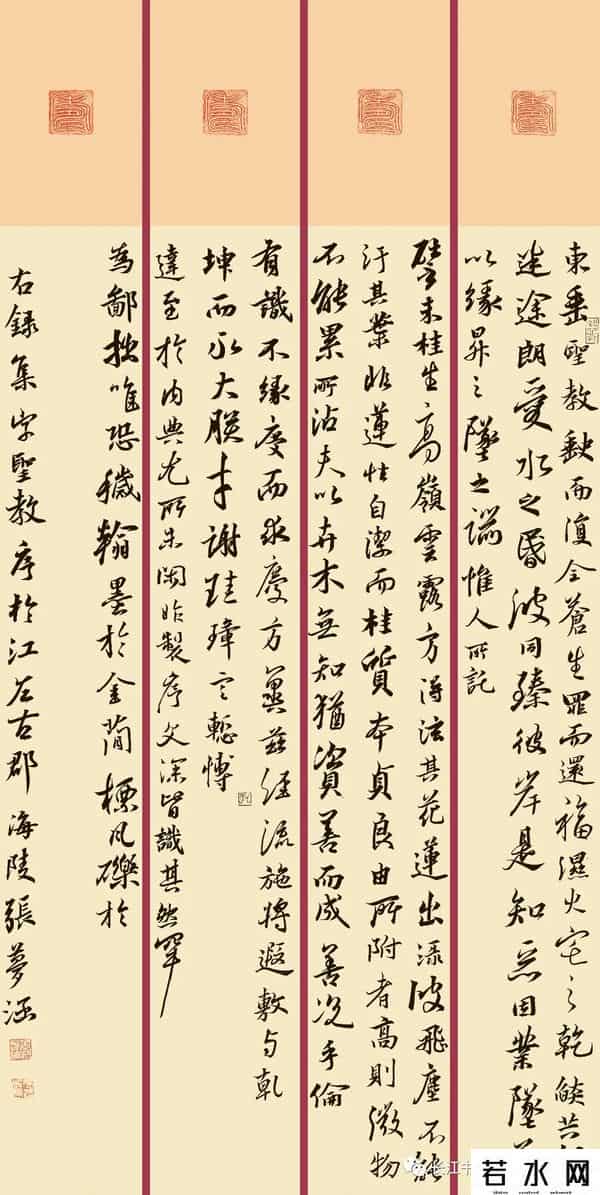 東垂聖教缺而復全蒼生罪而還福濕火宅之乾燄共
迷途朗愛水之昏波同臻彼岸是知惡因業墜
以緣昇之墜之端惟人所託
譬夫桂生高嶺雲露方得泫其花蓮出淥波飛塵不能
汙其葉非蓮性自潔而桂質本貞良由所附者高則微物
不能累所沾夫以卉木無知猶資善而成善況乎倫
有識不緣慶而求慶方冀茲經流施將遐敷與乾
坤而永大朕才謝珪璋言慙博
達至於內典尤所未閑昨製序文深皆識其然罕
為鄙拙唯恐穢翰墨於金簡標瓦礫於
右錄集字聖教序於江左古郡海陵張夢涵
长江
若水网